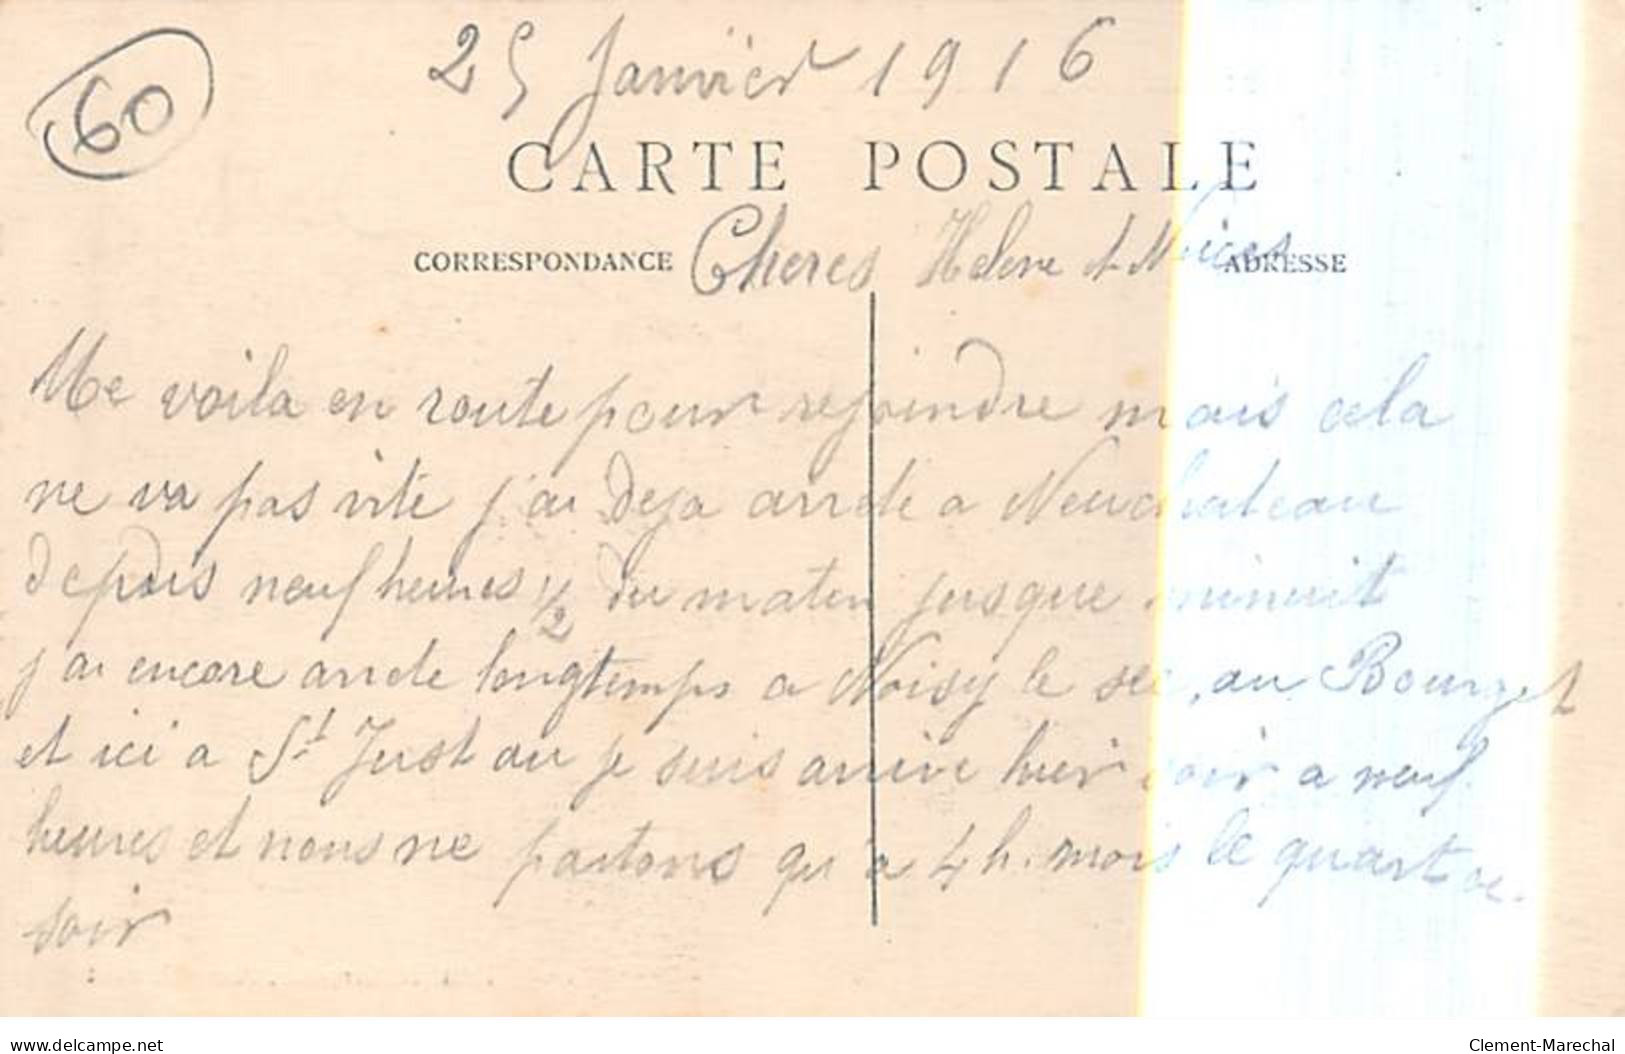 60
25 Janvier 1916
CARTE POSTALE
CORRESPONDANCE
ADRESSE
Cheres Helene et Nieces
Me voila en route pour rejoindre mais cela
ne va pas vite j'ai deja arrete a Neuchateau
depuis neuf heures 1/2 du matin jusque minuit
j'ai encore arrete longtemps a Noisy le sec, au Bourget
et ici a St Just ou je suis arrive hier soir a neuf
heures et nous ne partons qu'a 4 h. mois le quart ce
soir
www.delcampe.net
Clement-Marechal